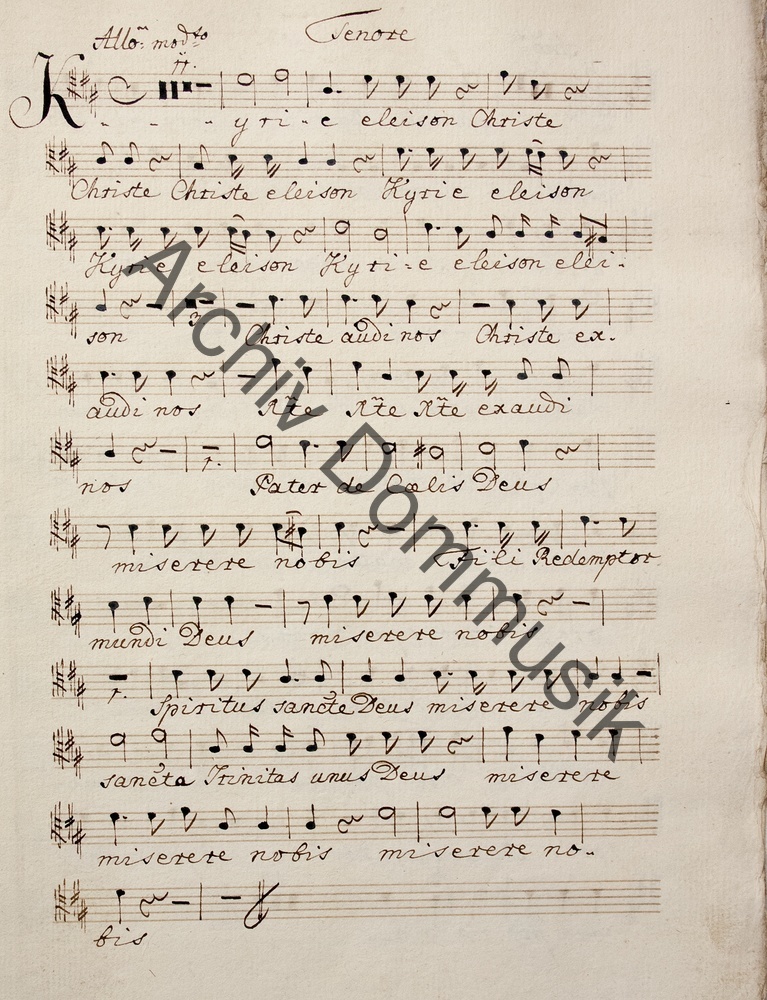 Tenore
Allo: modto
11.
Kyri-e eleison Christe
Christe Christe eleison Kyrie eleison
Kyrie eleison Kyri-e eleison elei-
3
son Christe audi nos Christe ex-
audi nos Xte Xte Xte exaudi
1.
nos Pater de Cœlis Deus
miserere nobis Fili Redemptor
mundi Deus miserere nobis
1.
Spiritus sancte Deus miserere nobis
sancta Trinitas unus Deus miserere
miserere nobis miserere no-
bis
Archiv Dommusik